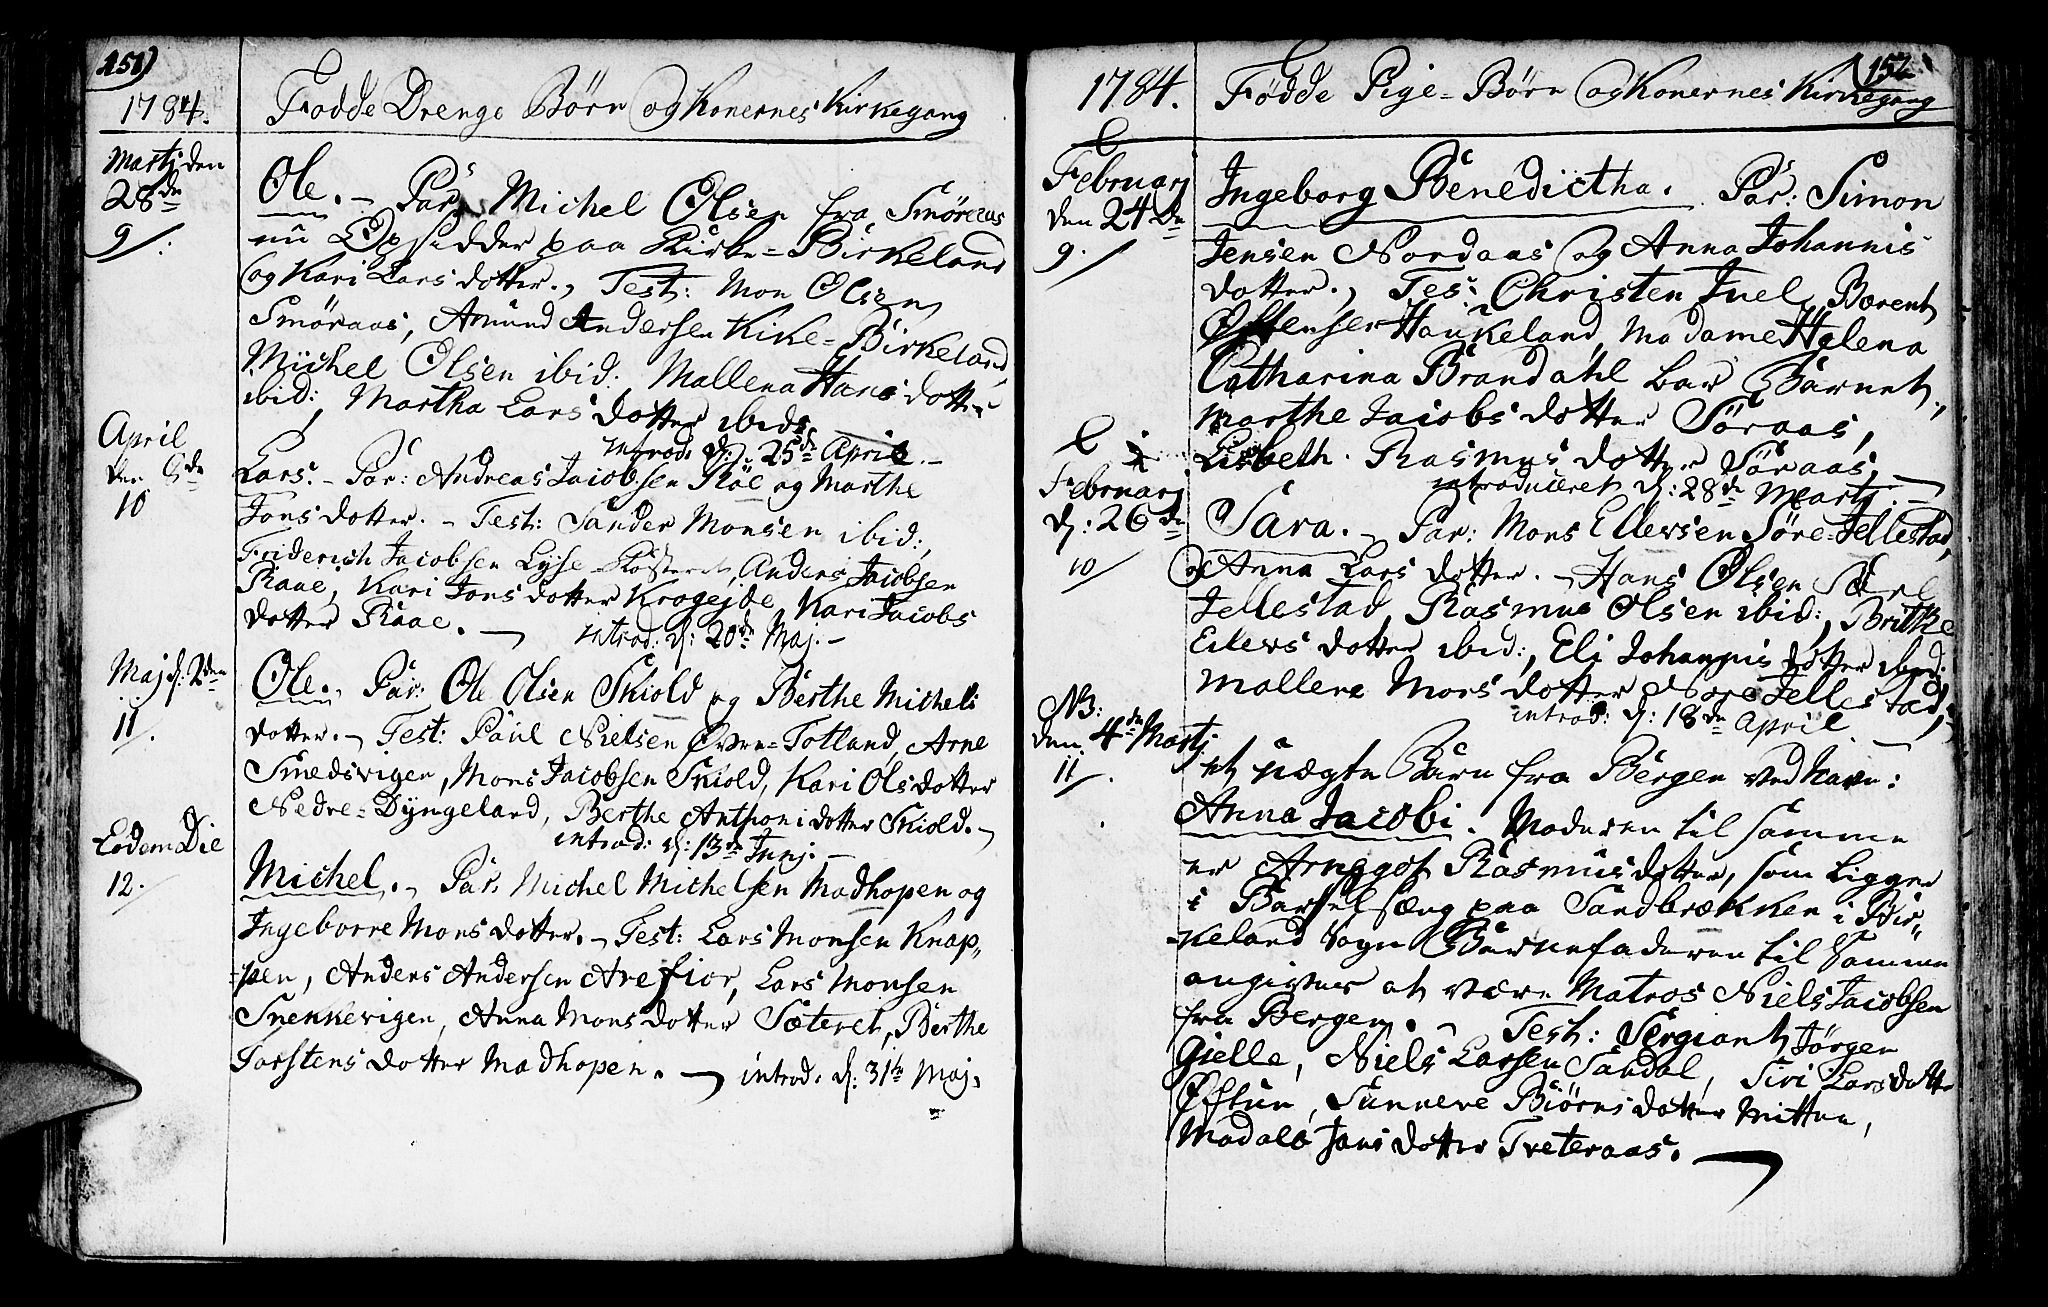 151)
1784.
Fødde Drenge Børn og Konernes Kirkegang
Martj den
28de
9/.
Ole. – Par: Michel Olsen fra Smøraas
nu Opsidder paa Kirke=Birkeland
og Kari Lars dotter., Test: Mon Olsen
Smøraas, Amund Andersen Kirke=Birkeland
Michel Olsen ibid:, Mallena Hans dotter
ibid:, Martha Lars dotter ibid:
introd: d: 25de April. –
April
den 9de
10
Lars. – Par: Andreas Jacobsen Raae og Marthe
Jons dotter. – Test: Sander Monsen ibid:,
Friderich Jacobsen Lyse Klosteret, Anders Jacobsen
Raae, Kari Jons dotter Krogejde, Kari Jacobs
dotter Raae. –
introd: d: 20de Maj. –
Maj d: 2den
11/.
Ole. – Par: Ole Olsen Skiold og Berthe Michels
dotter. – Test: Paul Nielsen Øvre=Totland, Arne
Smedsvigen, Mons Jacobsen Skiold, Kari Ols dotter
Nedre=Dyngeland, Berthe Anthoni dotter Skiold. –
introd: d: 13de Junj. –
Eodem Die
12./
Michel. – Par: Michel Michelsen Madhopen og
Ingeborre Mons dotter. – Test: Lars Monsen Knap-
-pen, Anders Andersen Arefior, Lars Monsen
Snekkevigen, Anna Mons dotter Sæteret, Berthe
Torstens dotter Madhopen. – introd: d: 31te Maj.
152
1784.
Fødde Pige=Børn og Konernes Kirkegang
Februarj
den 24de
9./
Ingeborg Benedictha. Par: Simon
Jensen Nordaas og Anna Johannis
dotter., Tes: Christen Juel, Bærent
Østensen Haukeland, Madame Helena
Catharina Brandahl bar Barnet,
Marthe Jacobs dotter Søraas,
Lisbeth Rasmus dotter Søraas, –
introduceret d: 28de Martj. –
Februarj
d: 26de
10/
Sara. – Par: Mons Ellersen Søre=Jellestad,
og Anna Lars dotter. – Hans Olsen Søre
Jellestad, Rasmus Olsen ibid:, Britha
Ellers dotter ibid:, Eli Johannis dotter ibid:
Mallena Mons dotter Nore Jellestad, –
introd: d: 18de April. –
NB:
den 4de Martj
11/.
et uægte Barn fra Bergen ved Navn:
Anna Jacobi. Moderen til samme
er Arnggot Rasmusdotter, som ligger
i Barselseng paa Sandbrekken i Bir-
-keland Sogn Barnefaderen til samme
angives at være Matros Niels Jacobsen
fra Bergen. – Test: Sergiant Jørgen
Gielle, Niels Larsen Sandal, Siri Lars dotter
Østun, Sunneve Biørns dotter Mitten,
Madalo Jans dotter Treteraas. –